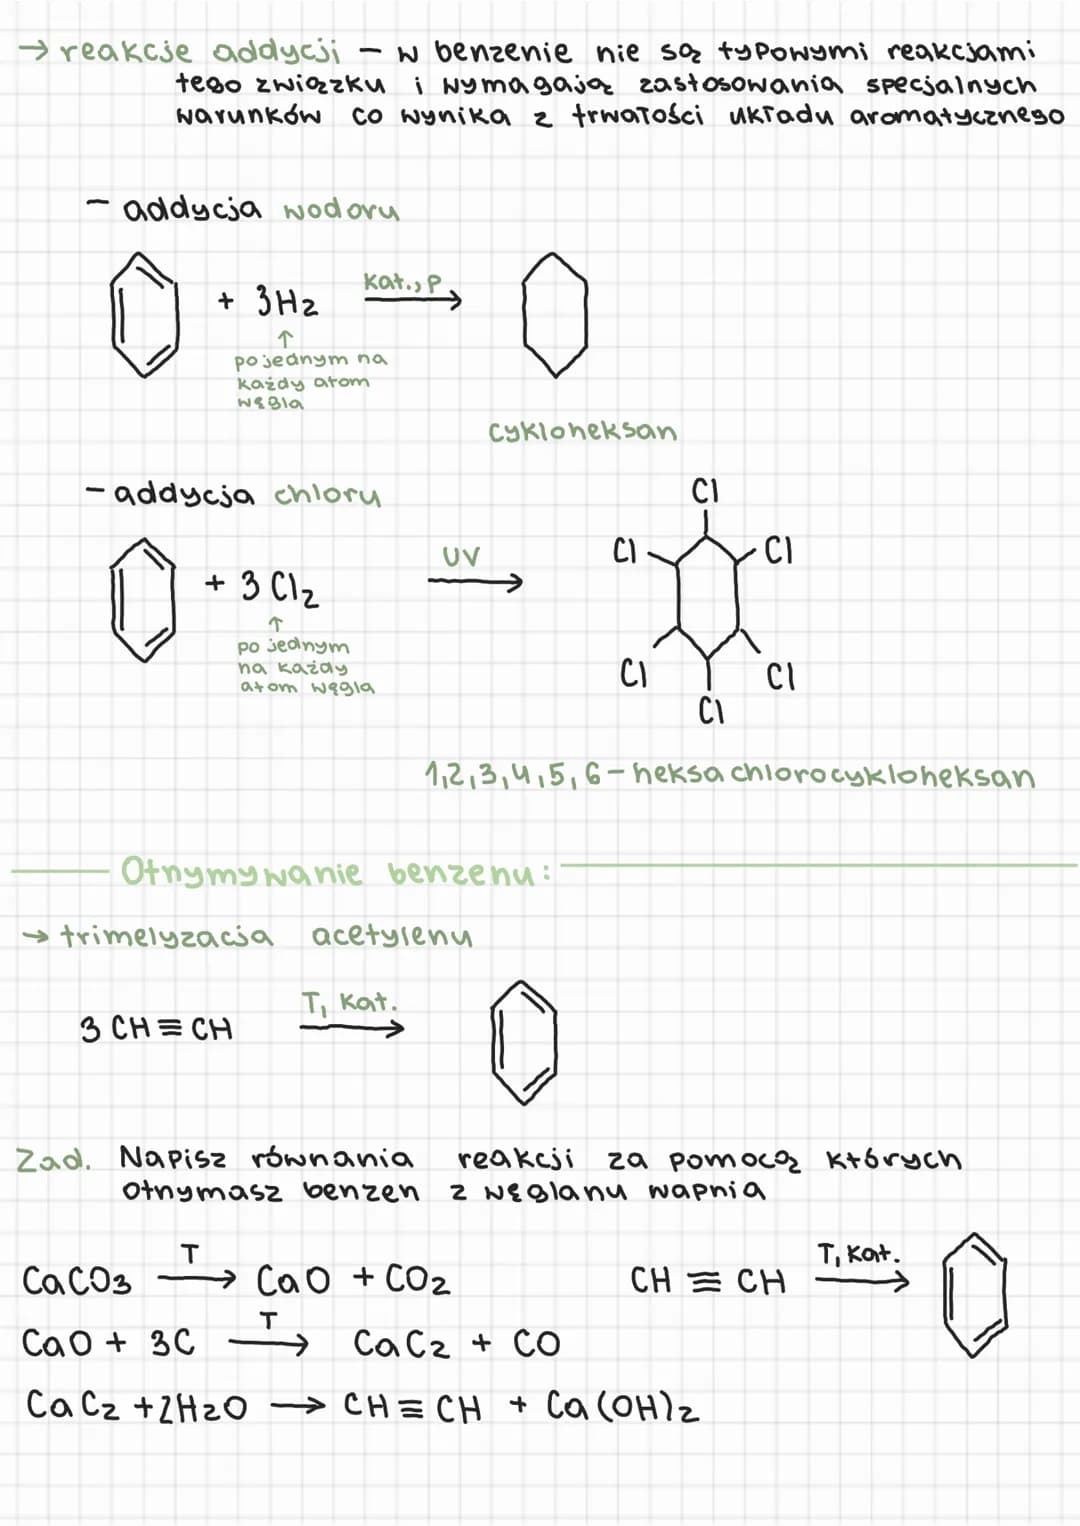 → reakcje addycji – w benzenie nie są typowymi reakcjami
tego związku i wymagają zastosowania specjalnych
warunków co wynika z trwałości układu aromatycznego
– addycja wodoru
+ 3H2 kat., p
↑
po jednym na
każdy atom
węgla
cykloheksan
– addycja chloru
Cl
Cl Cl
+ 3 Cl2 UV
↑
po jednym
na każdy
atom węgla
Cl Cl
Cl
1,2,3,4,5,6 – heksachlorocykloheksan
Otrzymywanie benzenu:
→ trimelyzacja acetylenu
3 CH≡CH T, kat.
Zad. Napisz równania reakcji za pomocą których
otrzymasz benzen z węglanu wapnia
CaCO3 T→ CaO + CO2
CH ≡ CH T, kat.→
CaO + 3C T→ CaC2 + CO
CaC2 + 2H2O → CH≡CH + Ca(OH)2